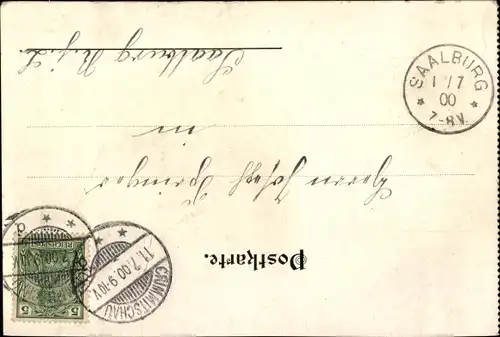 Postkarte.
Herrn Joseph Springer
in
Saalburg
SAALBURG
1 /7
00
7-8V.
CRIMMITSCHAU
11.7.00.9-10V.
REICHSPOST
5 5